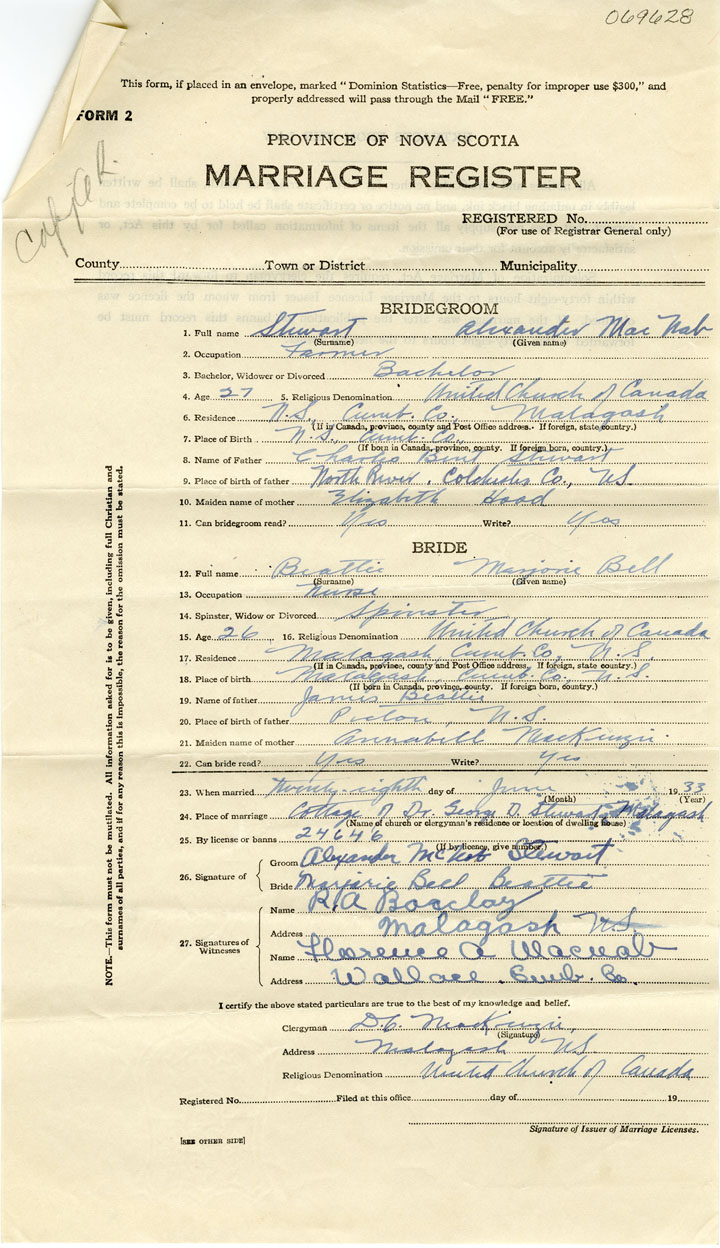 069628
This form, if placed in an envelope, marked "Dominion Statistics—Free, penalty for improper use $300," and
properly addressed will pass through the Mail "FREE."
FORM 2
PROVINCE OF NOVA SCOTIA
MARRIAGE REGISTER
REGISTERED No.
(For use of Registrar General only)
County Town or District Municipality
BRIDEGROOM
1. Full name Stewart Alexander Mac Nab
(Surname) (Given name)
2. Occupation Farmer
3. Bachelor, Widower or Divorced Bachelor
4. Age 27 5. Religious Denomination United Church of Canada
6. Residence N.S. Cumb. Co. Malagash
(If in Canada, province, county and Post Office address. If foreign, state country.)
7. Place of Birth N.S. Cumb. Co.
(If born in Canada, province, county. If foreign born, country.)
8. Name of Father Charles Bent Stewart
9. Place of birth of father North River, Colchester Co., N.S.
10. Maiden name of mother Elizabeth Hood
11. Can bridegroom read? Yes Write? Yes
BRIDE
12. Full name Beattie Marjorie Bell
(Surname) (Given name)
13. Occupation Nurse
14. Spinster, Widow or Divorced Spinster
15. Age 26 16. Religious Denomination United Church of Canada
17. Residence Malagash, Cumb. Co., N.S.
(If in Canada, province, county and Post Office address. If foreign, state country.)
18. Place of birth Malagash, Cumb. Co., N.S.
(If born in Canada, province, county. If foreign born, country.)
19. Name of father James Beattie
20. Place of birth of father Pictou, N.S.
21. Maiden name of mother Annabell MacKenzie
22. Can bride read? Yes Write? Yes
23. When married twenty-eighth day of June 1933
(Month) (Year)
24. Place of marriage Cottage of Dr. George D. Stewart, Malagash
(Name of church or clergyman's residence or location of dwelling house)
25. By license or banns 24646
(If by licence, give number.)
26. Signature of
Groom Alexander McNab Stewart
Bride Marjorie Bell Beattie
27. Signatures of Witnesses
Name R.A Barclay
Address Malagash N.S.
Name Florence A Macnab
Address Wallace. Cumb. Co.
I certify the above stated particulars are true to the best of my knowledge and belief.
Clergyman D.C. MacKenzie
(Signature)
Address Malagash N.S.
Religious Denomination United Church of Canada
Registered No. Filed at this office day of 19
Signature of Issuer of Marriage Licenses.
[SEE OTHER SIDE]
NOTE.—This form must not be mutilated. All information asked for is to be given, including full Christian and
surnames of all parties, and if for any reason this is impossible, the reason for the omission must be stated.